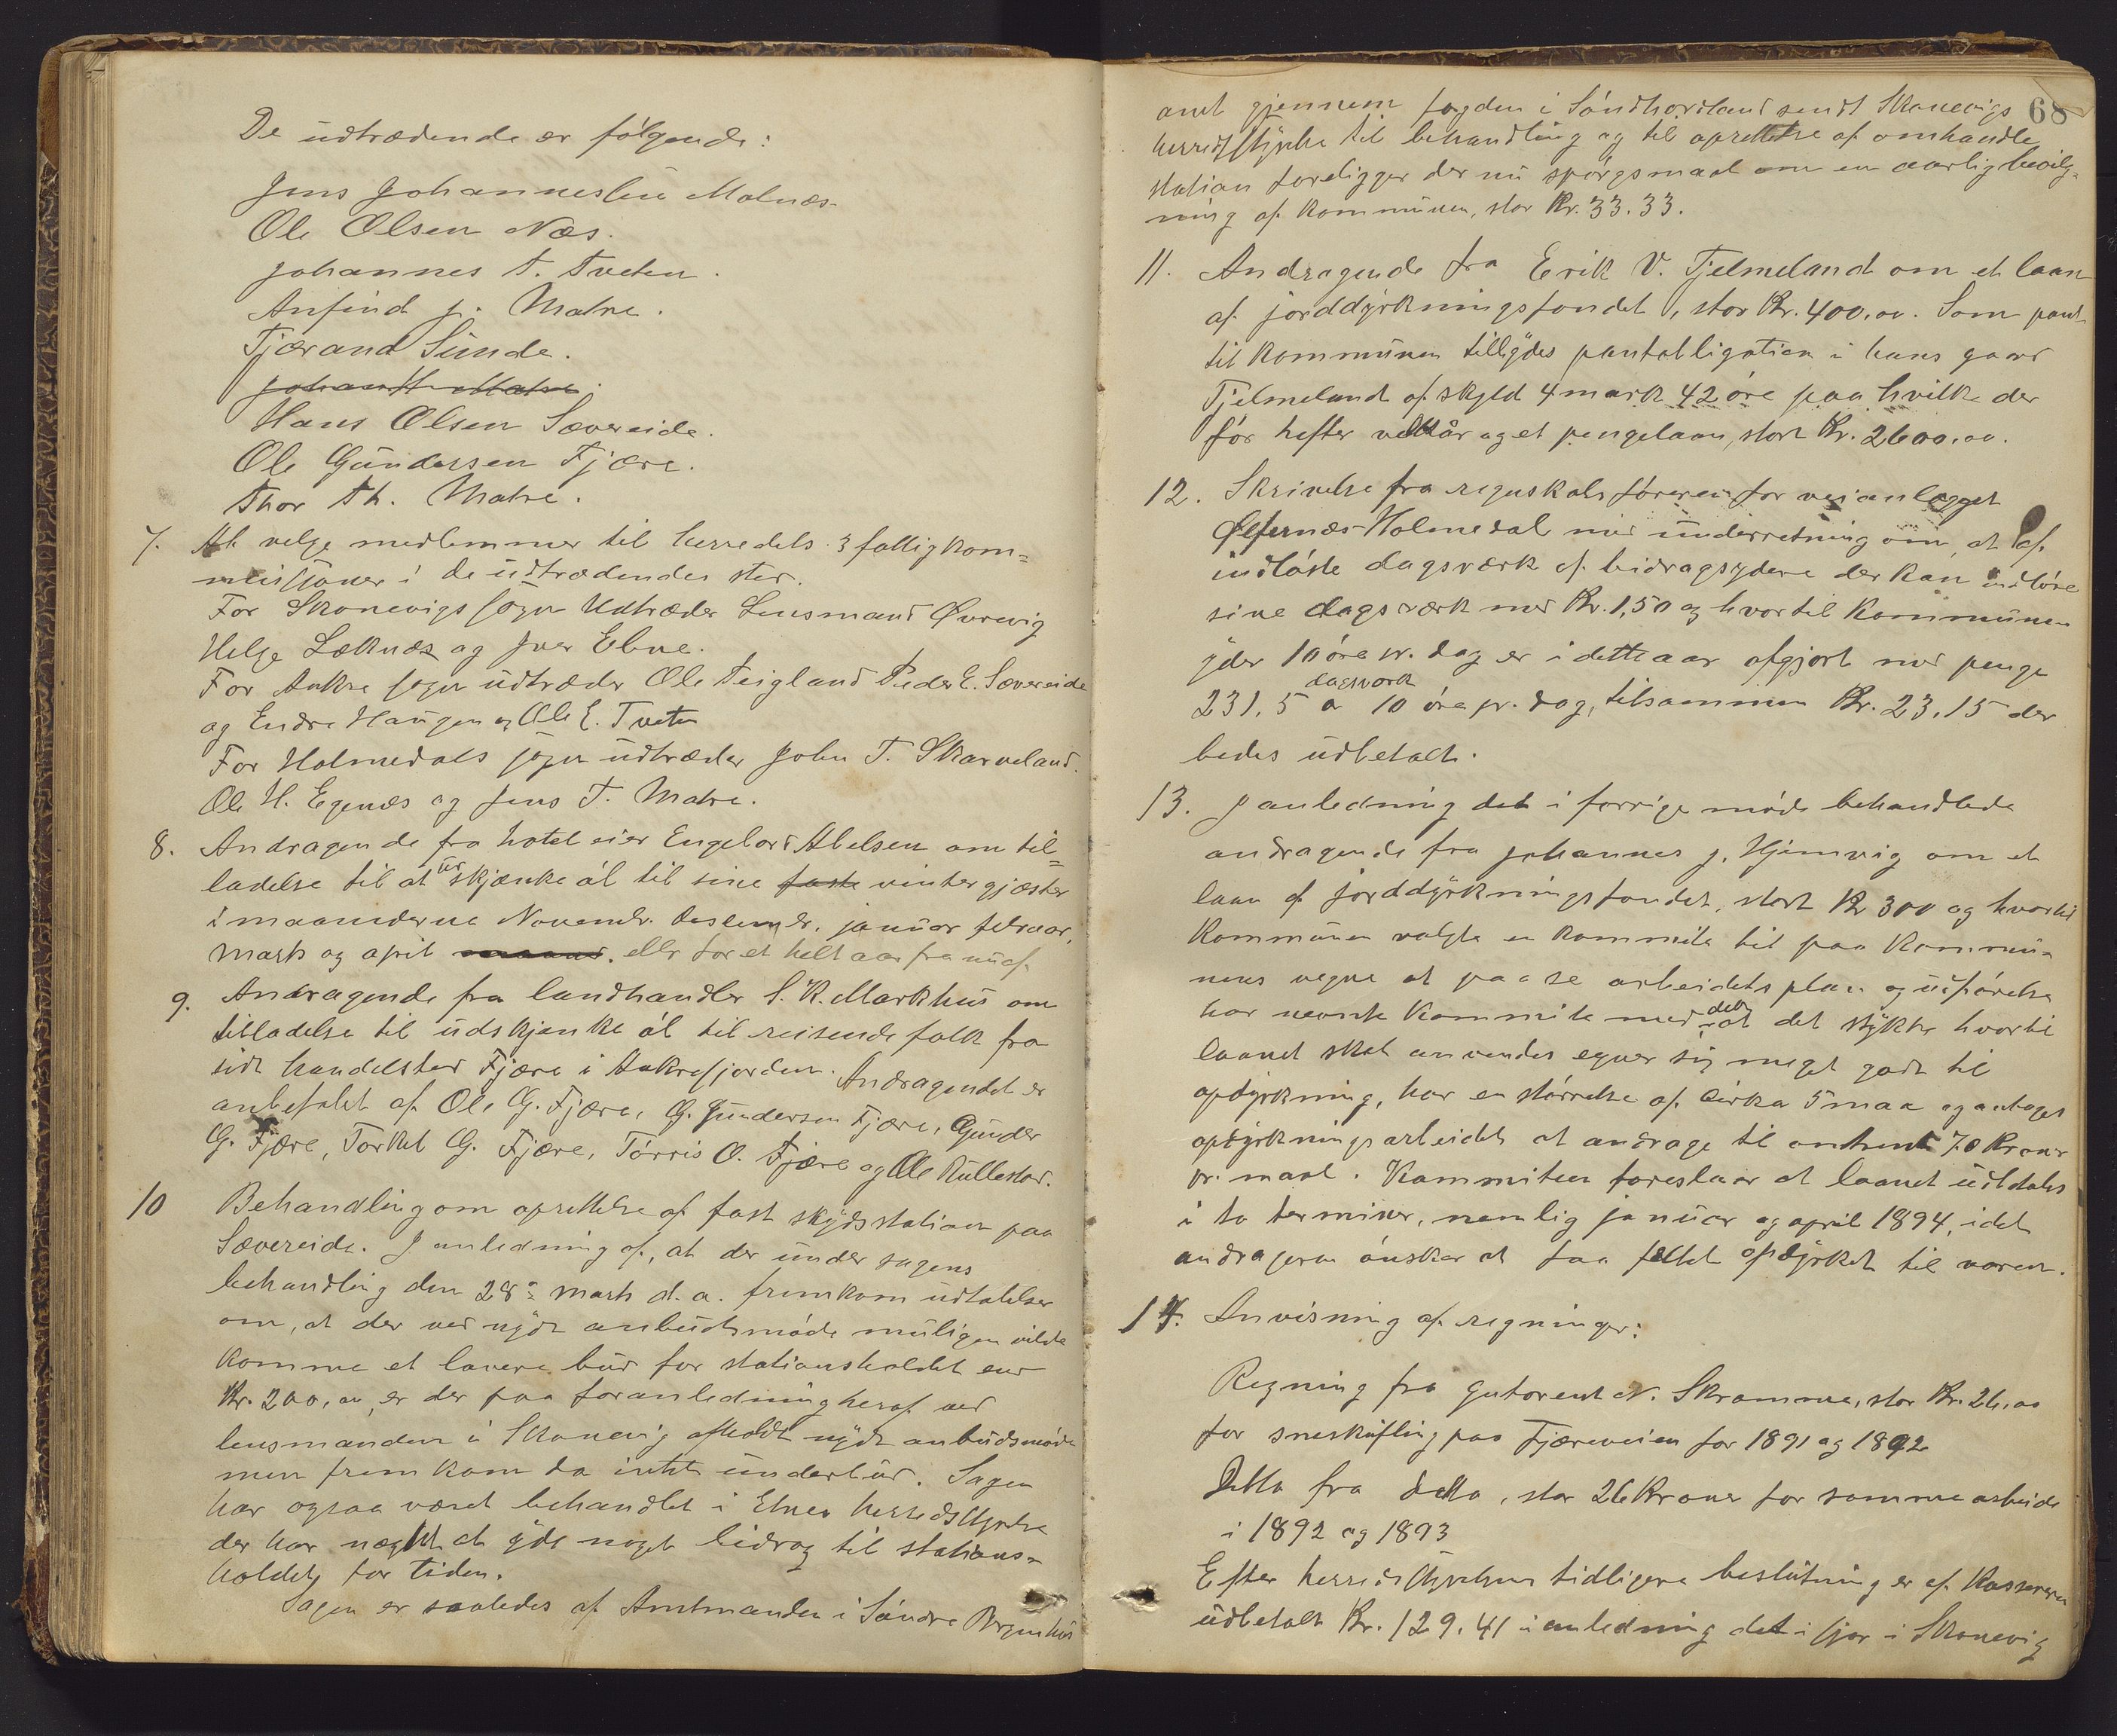 De udtrædende er følgende:
Jens Johanneslien Molnæs
Ole Olsen Næs.
Johannes T. Tveten.
Anfind J. Matre.
Tjærand Sunde.
Johan H. Matre.
Hans Olsen Sævereide.
Ole Gundersen Fjære.
Thor Th. Matre.
7. At velge medlemmer til herredets 3 fattigkom=
missjoner i de udtrædendes sted.
For Skonevigs sogn Udtræder Lensmand Øvrevig
Helge Løknæs og Iver Ebne.
For Aakre sogn udtræder Ole Teigland Peder E. Sævereide
og Endre Haugen og Ole E. Tveten
For Holmedals sogn udtræder John T. Skarveland.
Ole H. Egenæs og Jens T. Matre.
8. Andragende fra hotel eier Engelbert Abelsen om til=
ladelse til at udskjænke øl til sine faste vintergjæster
i maanederne Novembr. Desembr. januar februar,
marts og april maaned. eller for et helt aar fra nu af.
9. Andragende fra landhandler S. K. Markhus om
tilladelse til udskjænke øl til reisende folk fra
sit handelsted Fjære i Aakrefjorden. Andragendet er
anbefalet af Ole G. Fjære, G. Gundersen Fjære, Gunder
G. Fjære, Torkel G. Fjære, Tørris O. Fjære og Ole Rullestad.
10 Behandling om oprettelse af fast skydsstation paa
Sævereide. I anledning af, at der under sagens
behandling den 28de marts d. a. fremkom udtalelser
om, at der ved nyt anbudsmøde muligen vilde
komme et lavere bud for stationsholdet end
Kr. 200,00, er der paa foranledning heraf ved
lensmanden i Skonevig afholdt nyt anbudsmøde
men fremkom da intet underbud. Sagen
har ogsaa været behandlet i Etnes herredsstyrelse
der har nægtet at yde noget bidrag til stations=
holdet for tiden.
Sagen er saaledes af Amtmanden i Søndre Bergenhus
68
amt gjennem fogden i Søndhordland sendt Skonevigs
herredsstyrelse til behandling og til oprettelse af omhandlede
station foreligger der nu spørgsmaal om en aarlig bevilg=
ning af kommunen, stor Kr. 33.33.
11. Andragende fra Erik V. Tjelmeland om et laan
af jorddyrkningsfondet, stor Kr. 400,00. Som pant
til kommunen tilbydes pantobligation i hans gaard
Tjelmeland af skyld 4 mark 42 øre paa hvilke der
før hefter vilkår og et pengelaan, stort Kr. 2600,00.
12. Skrivelse fra regnskabsføreren for veianlægget
Ølfernæs-Holmedal med underretning om, at af
indløste dagsværk af bidragsydere der kan indløse
sine dagsværk med Kr. 1,50 og hvortil kommunen
yder 10 øre pr. dag er i dette aar afgjort med penge
231,5 dagsværk a 10 øre pr. dag, tilsammen Kr. 23,15 der
bedes udbetalt.
13. I anledning det i forrige møde behandlede
andragende fra Johannes J. Hjemvig om et
laan af jorddyrkningsfondet, stort Kr 300 og hvortil
kommunen valgte en kommite til paa kommu=
nens vegne at paase arbeidets plan og udførelse
har nevnte kommite med delt at det stykke hvortil
laanet skal anvendes egner sig meget godt til
opdyrkning, har en størrelse af cirka 5 maal og antages
opdyrkningsarbeidet at andrage til omtrent 70 Kroner
pr. maal. Kommiteen foreslaar at laanet udbetales
i to terminer, nemlig januar og april 1894, idet
andrageren ønsker at faa feltet opdyrket til vaaren.
14. Anvisning af regninger:
Regning fra Gutorent N. Skromme, stor Kr. 26,00
for sneskufling paa Fjæreveien for 1891 og 1892
Ditto fra ditto, stor 26 Kroner for samme arbeide
i 1892 og 1893
Efter herredsstyrelsens tidligere beslutning er af Kassereren
udbetalt Kr. 129,41 i anledning det i fjor i Skonevig